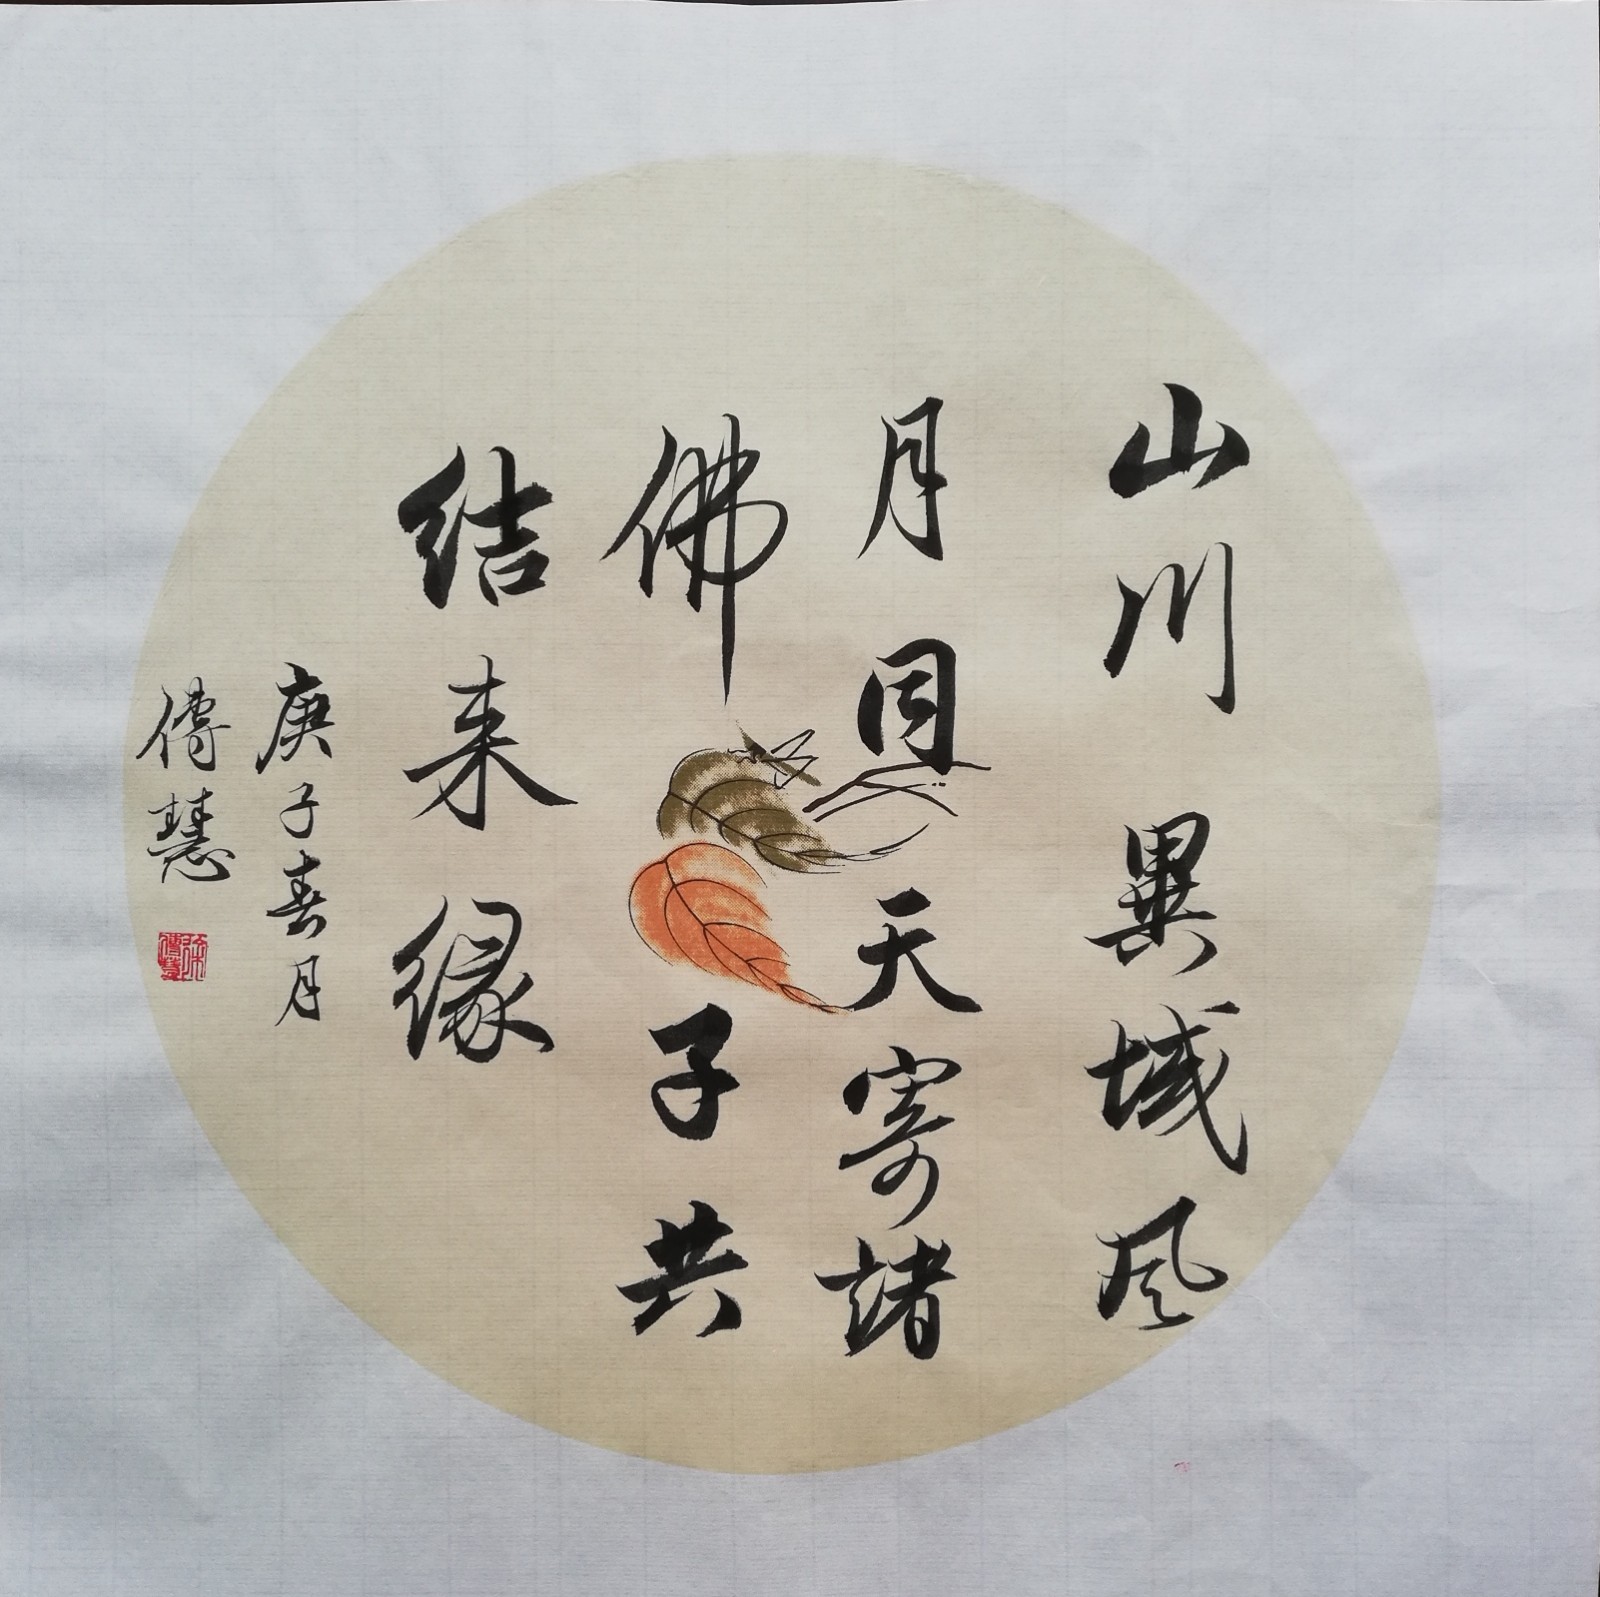 山川異域风
月同天寄諸
佛子共
结来缘
庚子春月
傅慧